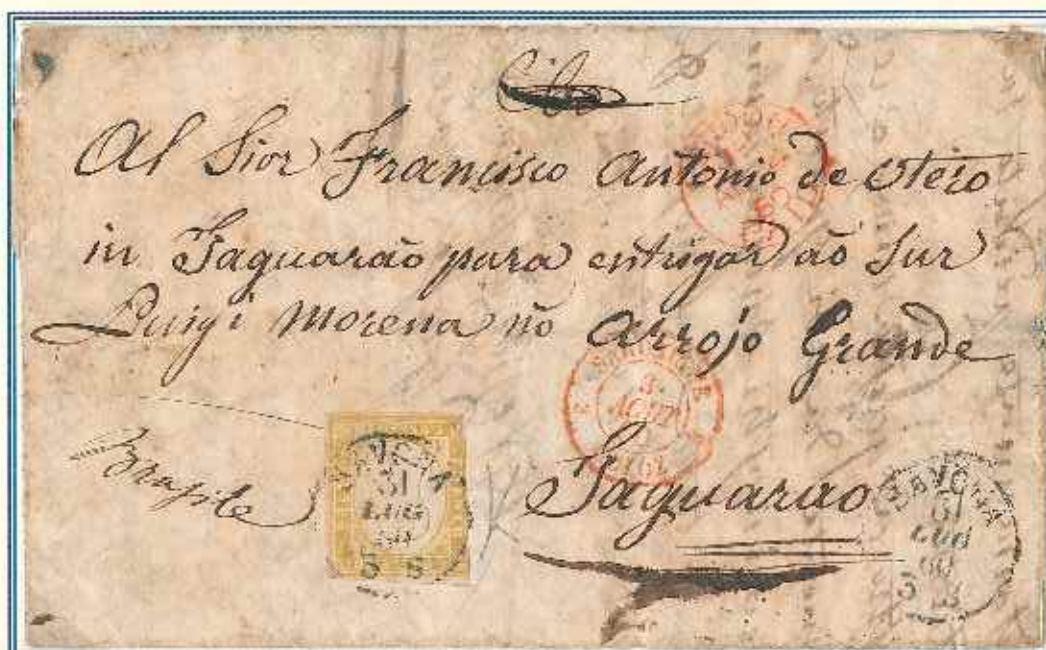 Al Sior Francisco Antonio de Otero
in Jaguarão para entrigar aõ Sur
Luigi Morena nõ Arrojo Grande
Brasile
Jaguarao
SAVONA
31
LUG
60
5 S
3
AOUT
SAVONA
31
LUG
60
5 S